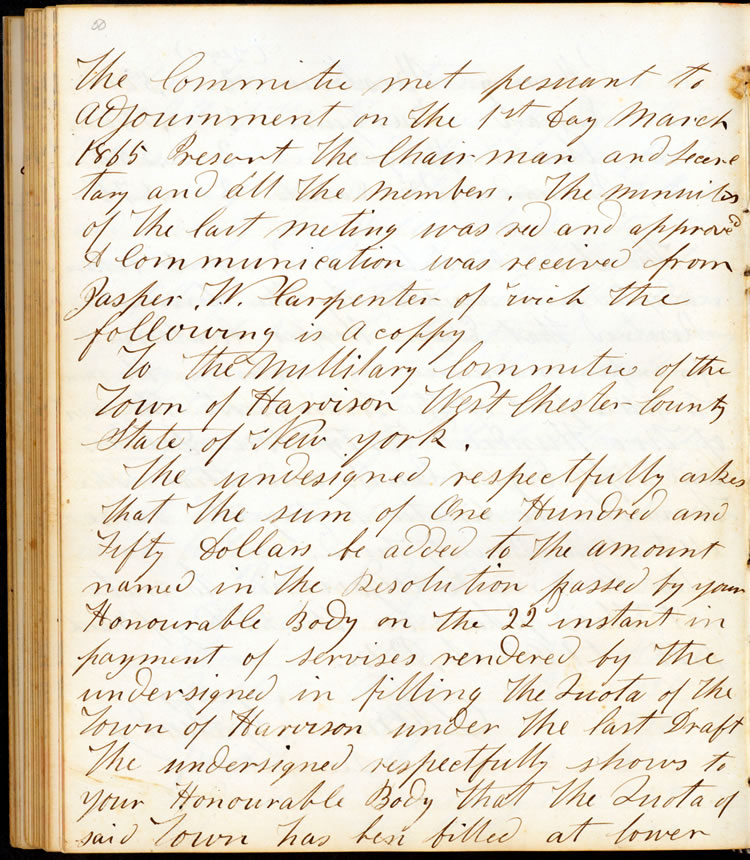 50
The Committe met pesuant to
adjournment on the 1st Day March
1865 Present the Chair man and Secre
tary and all the members. The minuites
of the last meting was red and approved
A Communication was received from
Jasper. W. Carpenter of wich the
following is a coppy
To the Millitary Committe of the
Town of Harrison West Chester County
State of New york.
The undesigned respectfully askes
that the sum of One Hundred and
Fifty Dollars be added to the amount
named in the Resolution passed by your
Honourable Body on the 22 instant in
payment of servises rendered by the
undersigned in filling the Quota of the
Town of Harrison under the last Draft
The undersigned respectfully shows to
your Honourable Body that the Quota of
said Town has ben filled at lower